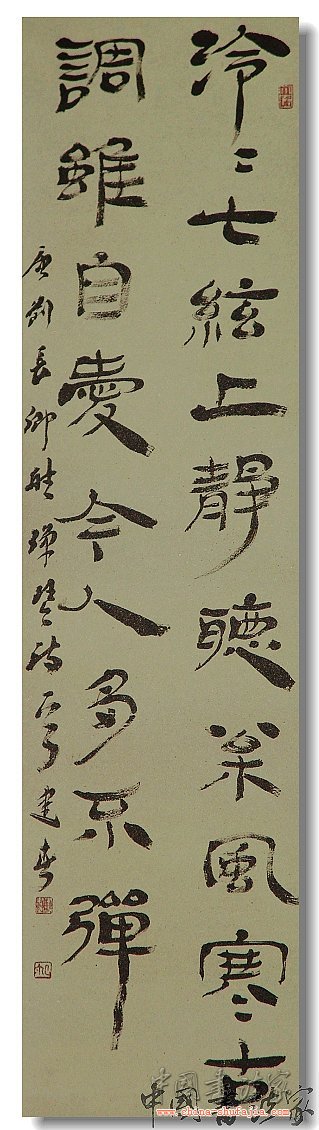 泠〻七絃上靜聽枀風寒古
調雖自愛今人多不彈
唐劉長卿聽彈琴詩 建春
中國書法家
www.china-shufajia.com
中國書法家